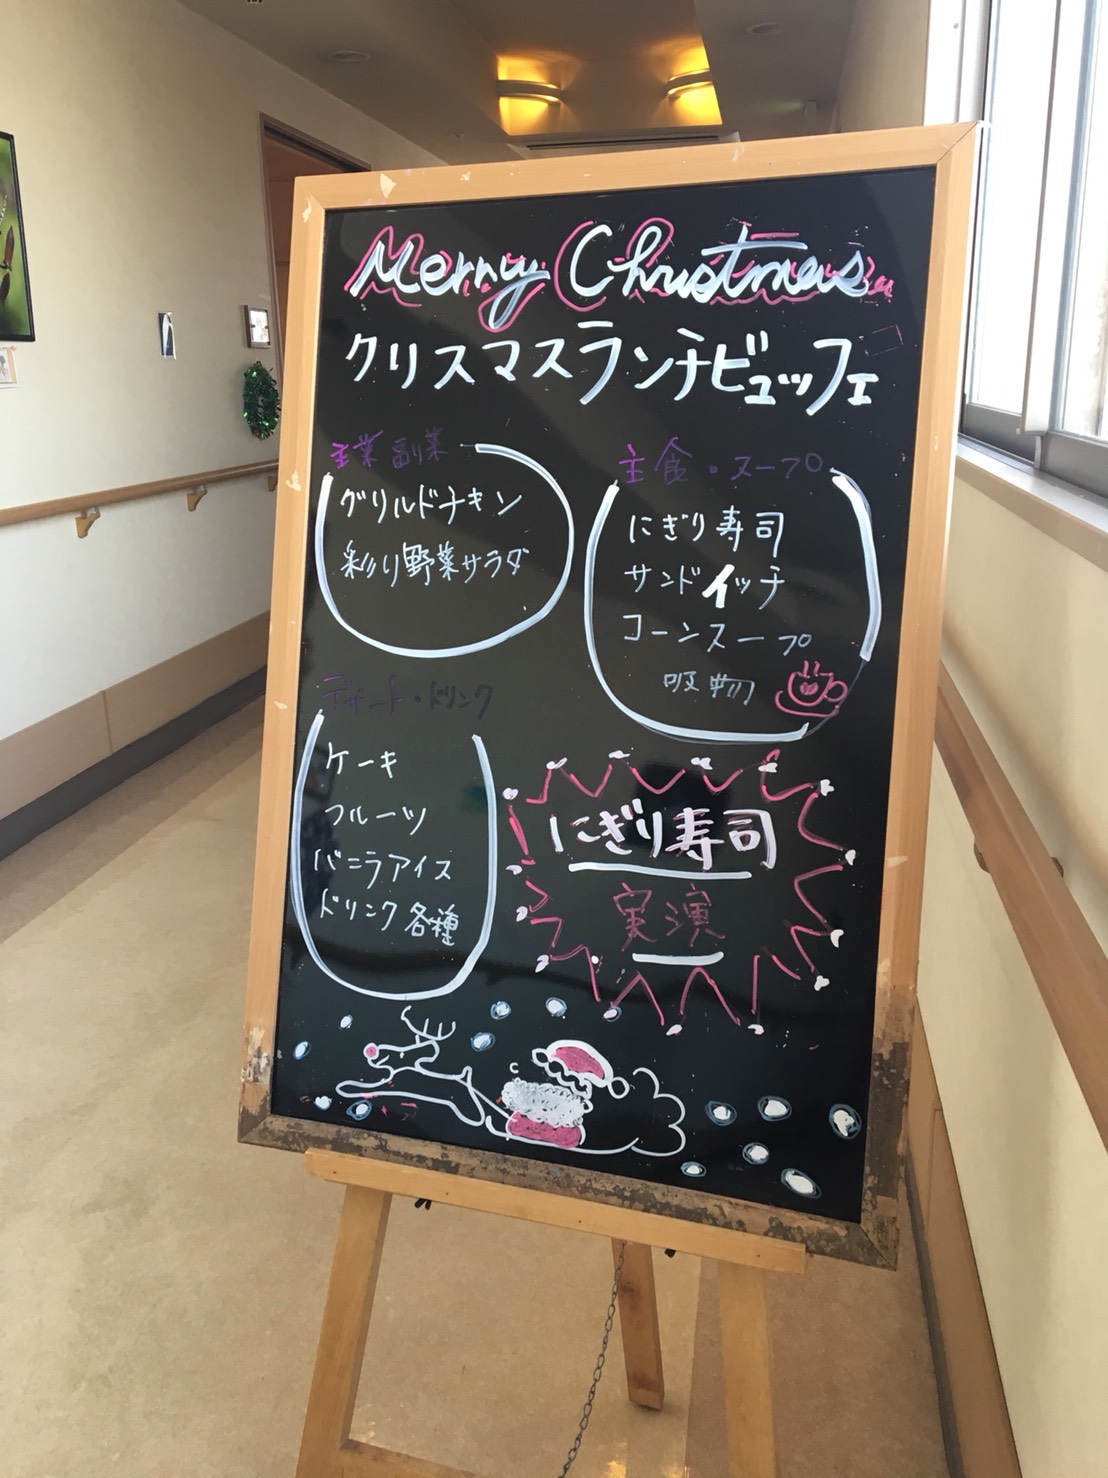 Merry Christmas
クリスマスランチビュッフェ
主菜 副菜
グリルドチキン
彩り野菜サラダ
主食・スープ
にぎり寿司
サンドイッチ
コーンスープ
吸物
デザート・ドリンク
ケーキ
フルーツ
バニラアイス
ドリンク各種
にぎり寿司
実演